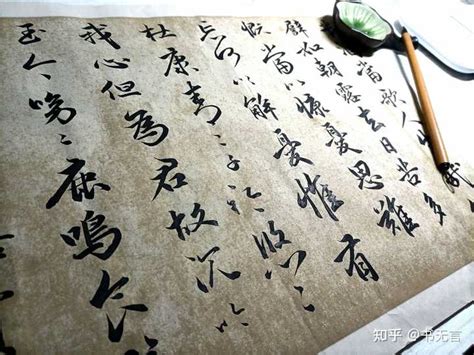 當歌人生
譬如朝露去日苦多
慨當以慷憂思難
忘何以解憂惟有
杜康青〻子衿悠〻
我心但為君故沉吟
至今呦〻鹿鳴食
知乎 @书无言